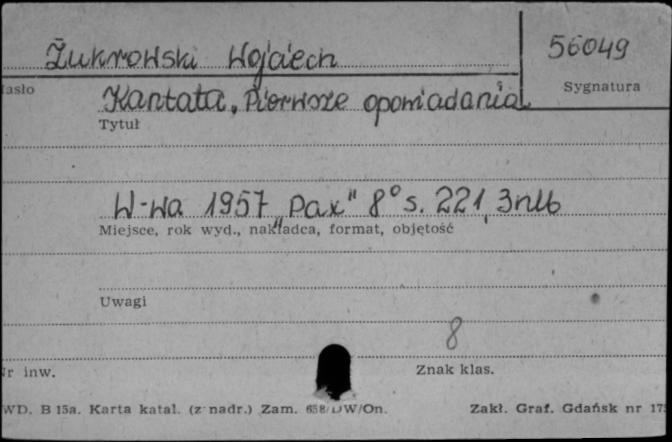 Żukrowski Wojciech
56049
asło
Sygnatura
Kantata. Pierwsze opowiadania
Tytuł
W-wa 1957 „Pax" 8° s. 221, 3nlb
Miejsce, rok wyd., nakładca, format, objętość
Uwagi
8
Nr inw.
Znak klas.
WD. B 15a. Karta katal. (z nadr.) Zam. 658/DW/On.
Zakł. Graf. Gdańsk nr 17